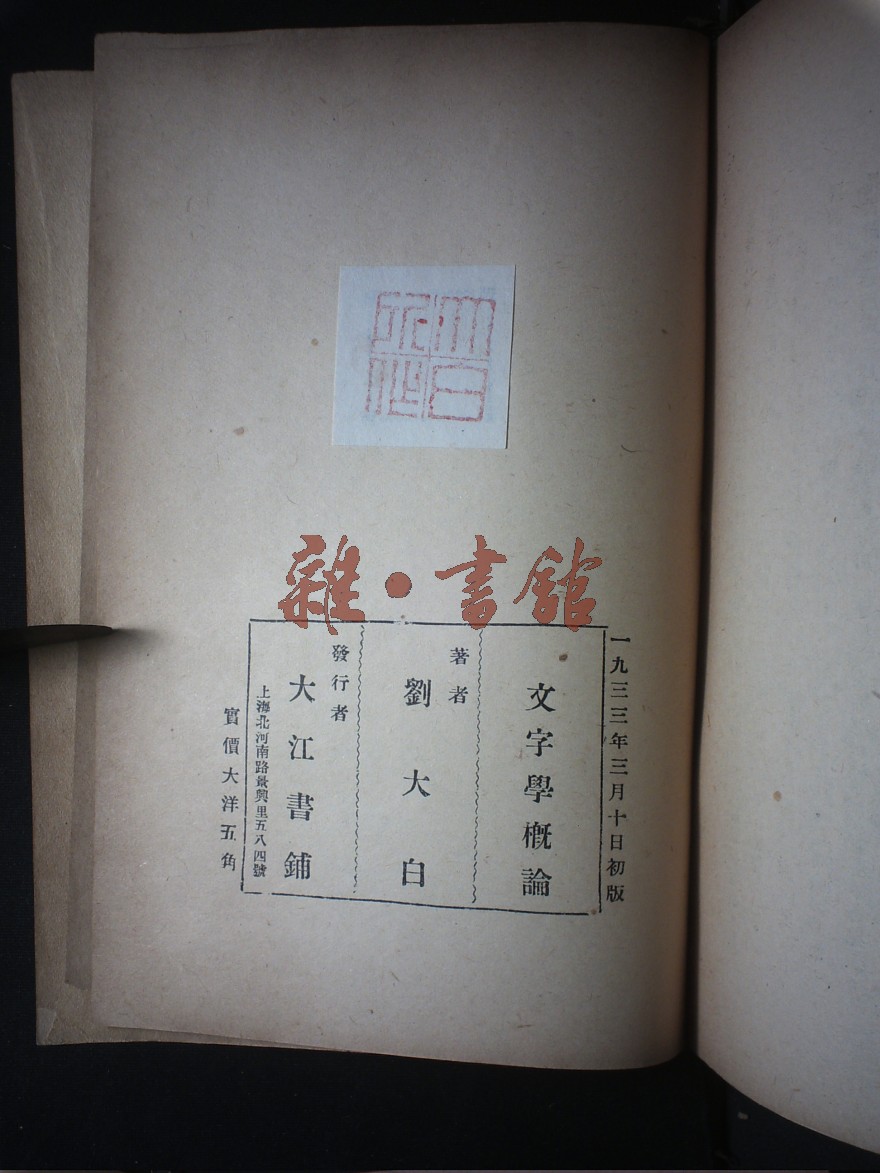 雜·書館
一九三三年三月十日初版
文字學概論
著者
劉大白
發行者
大江書鋪
上海北河南路景興里五八四號
實價大洋五角